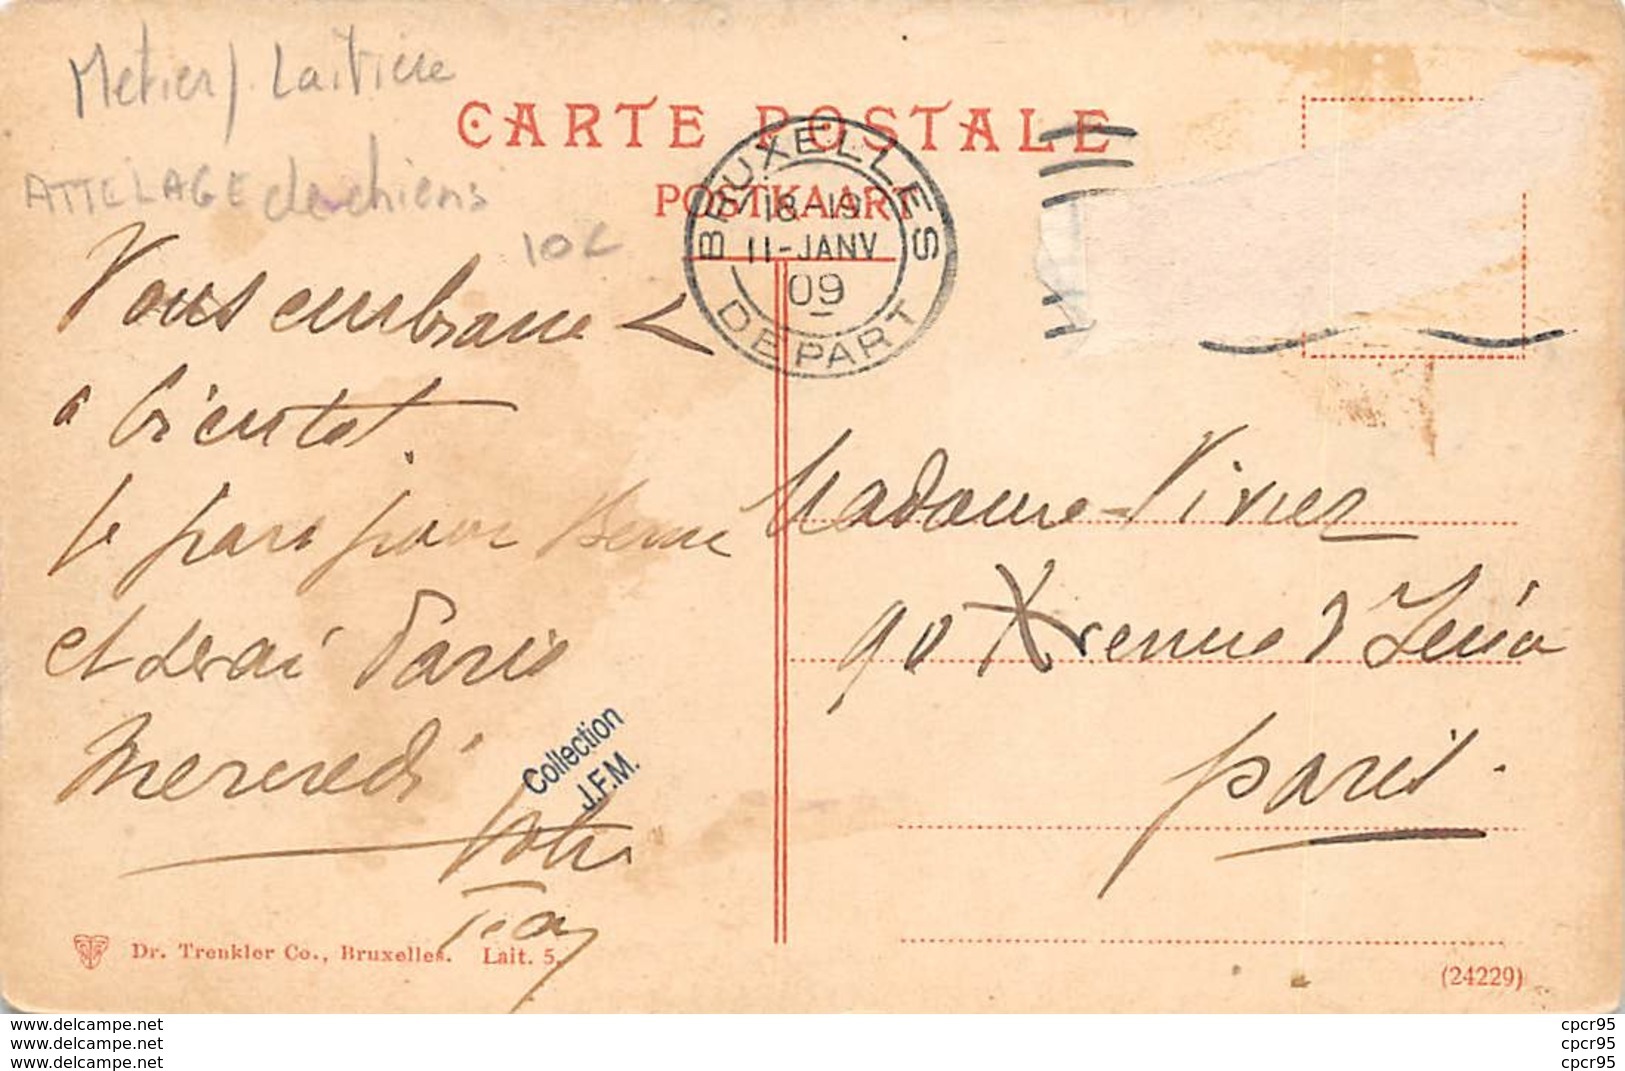 Metier / Laitiere
ATTELAGE de chiens
10
CARTE POSTALE
POSTKAART
BRUXELLES
18-19
11-JANV
09
DEPART
Vous embrasse
a bientot.
pars pour
et serai Paris
Mercredi
Collection
J.F.M.
Madame Vivier
90 Avenue d'Iéna
Paris.
Dr. Trenkler Co., Bruxelles. Lait. 5.
(24229)
www.delcampe.net
www.delcampe.net
www.delcampe.net
cpcr95
cpcr95
cpcr95